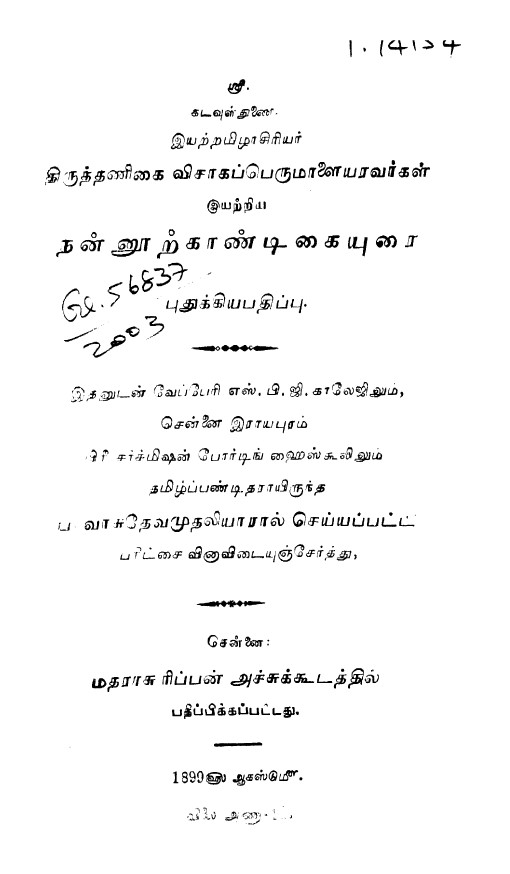 1.14124
ஸ்ரீ.
கடவுள் துணை.
இயற்றமிழாசிரியர்
திருத்தணிகை விசாகப்பெருமாளையரவர்கள்
இயற்றிய
நன்னூற்காண்டிகையுரை
56837
2003
புதுக்கியபதிப்பு.
இதனுடன் வேப்பேரி எஸ். பி. ஜி. காலேஜிலும்,
சென்னை இராயபுரம்
சர்ச்மிஷன் போர்டிங் ஹைஸ்கூலிலும்
தமிழ்ப்பண்டிதராயிருந்த
வாசுதேவமுதலியாரால் செய்யப்பட்ட
பரிட்சை வினாவிடையுஞ்சேர்த்து,
சென்னை:
மதராசு ரிப்பன் அச்சுக்கூடத்தில்
பதிப்பிக்கப்பட்டது.
1899௵ ஆகஸ்டு௴.
விலை அணா